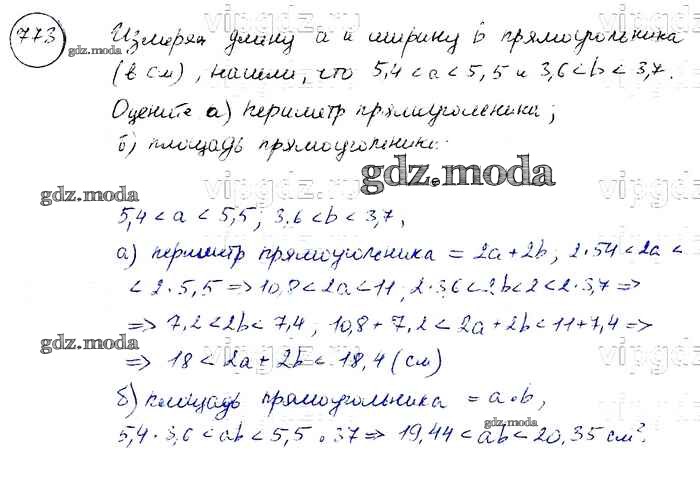 773 Измеряя длину a и ширину b прямоугольника
(в см), нашли, что 5,4 < a < 5,5 и 3,6 < b < 3,7.
Оцените а) периметр прямоугольника;
б) площадь прямоугольника.
5,4 < a < 5,5; 3,6 < b < 3,7,
а) периметр прямоугольника = 2a + 2b; 2·54 < 2a <
< 2·5,5 => 10,8 < 2a < 11; 2·3,6 < 2b < 2 < 2·3,7 =>
=> 7,2 < 2b < 7,4; 10,8 + 7,2 < 2a + 2b < 11 + 7,4 =>
=> 18 < 2a + 2b < 18,4 (см)
б) площадь прямоугольника = a·b,
5,4·3,6 < ab < 5,5·37 => 19,44 < ab < 20,35 см².
gdz.moda
gdz.moda
gdz.moda
gdz.moda
gdz.moda